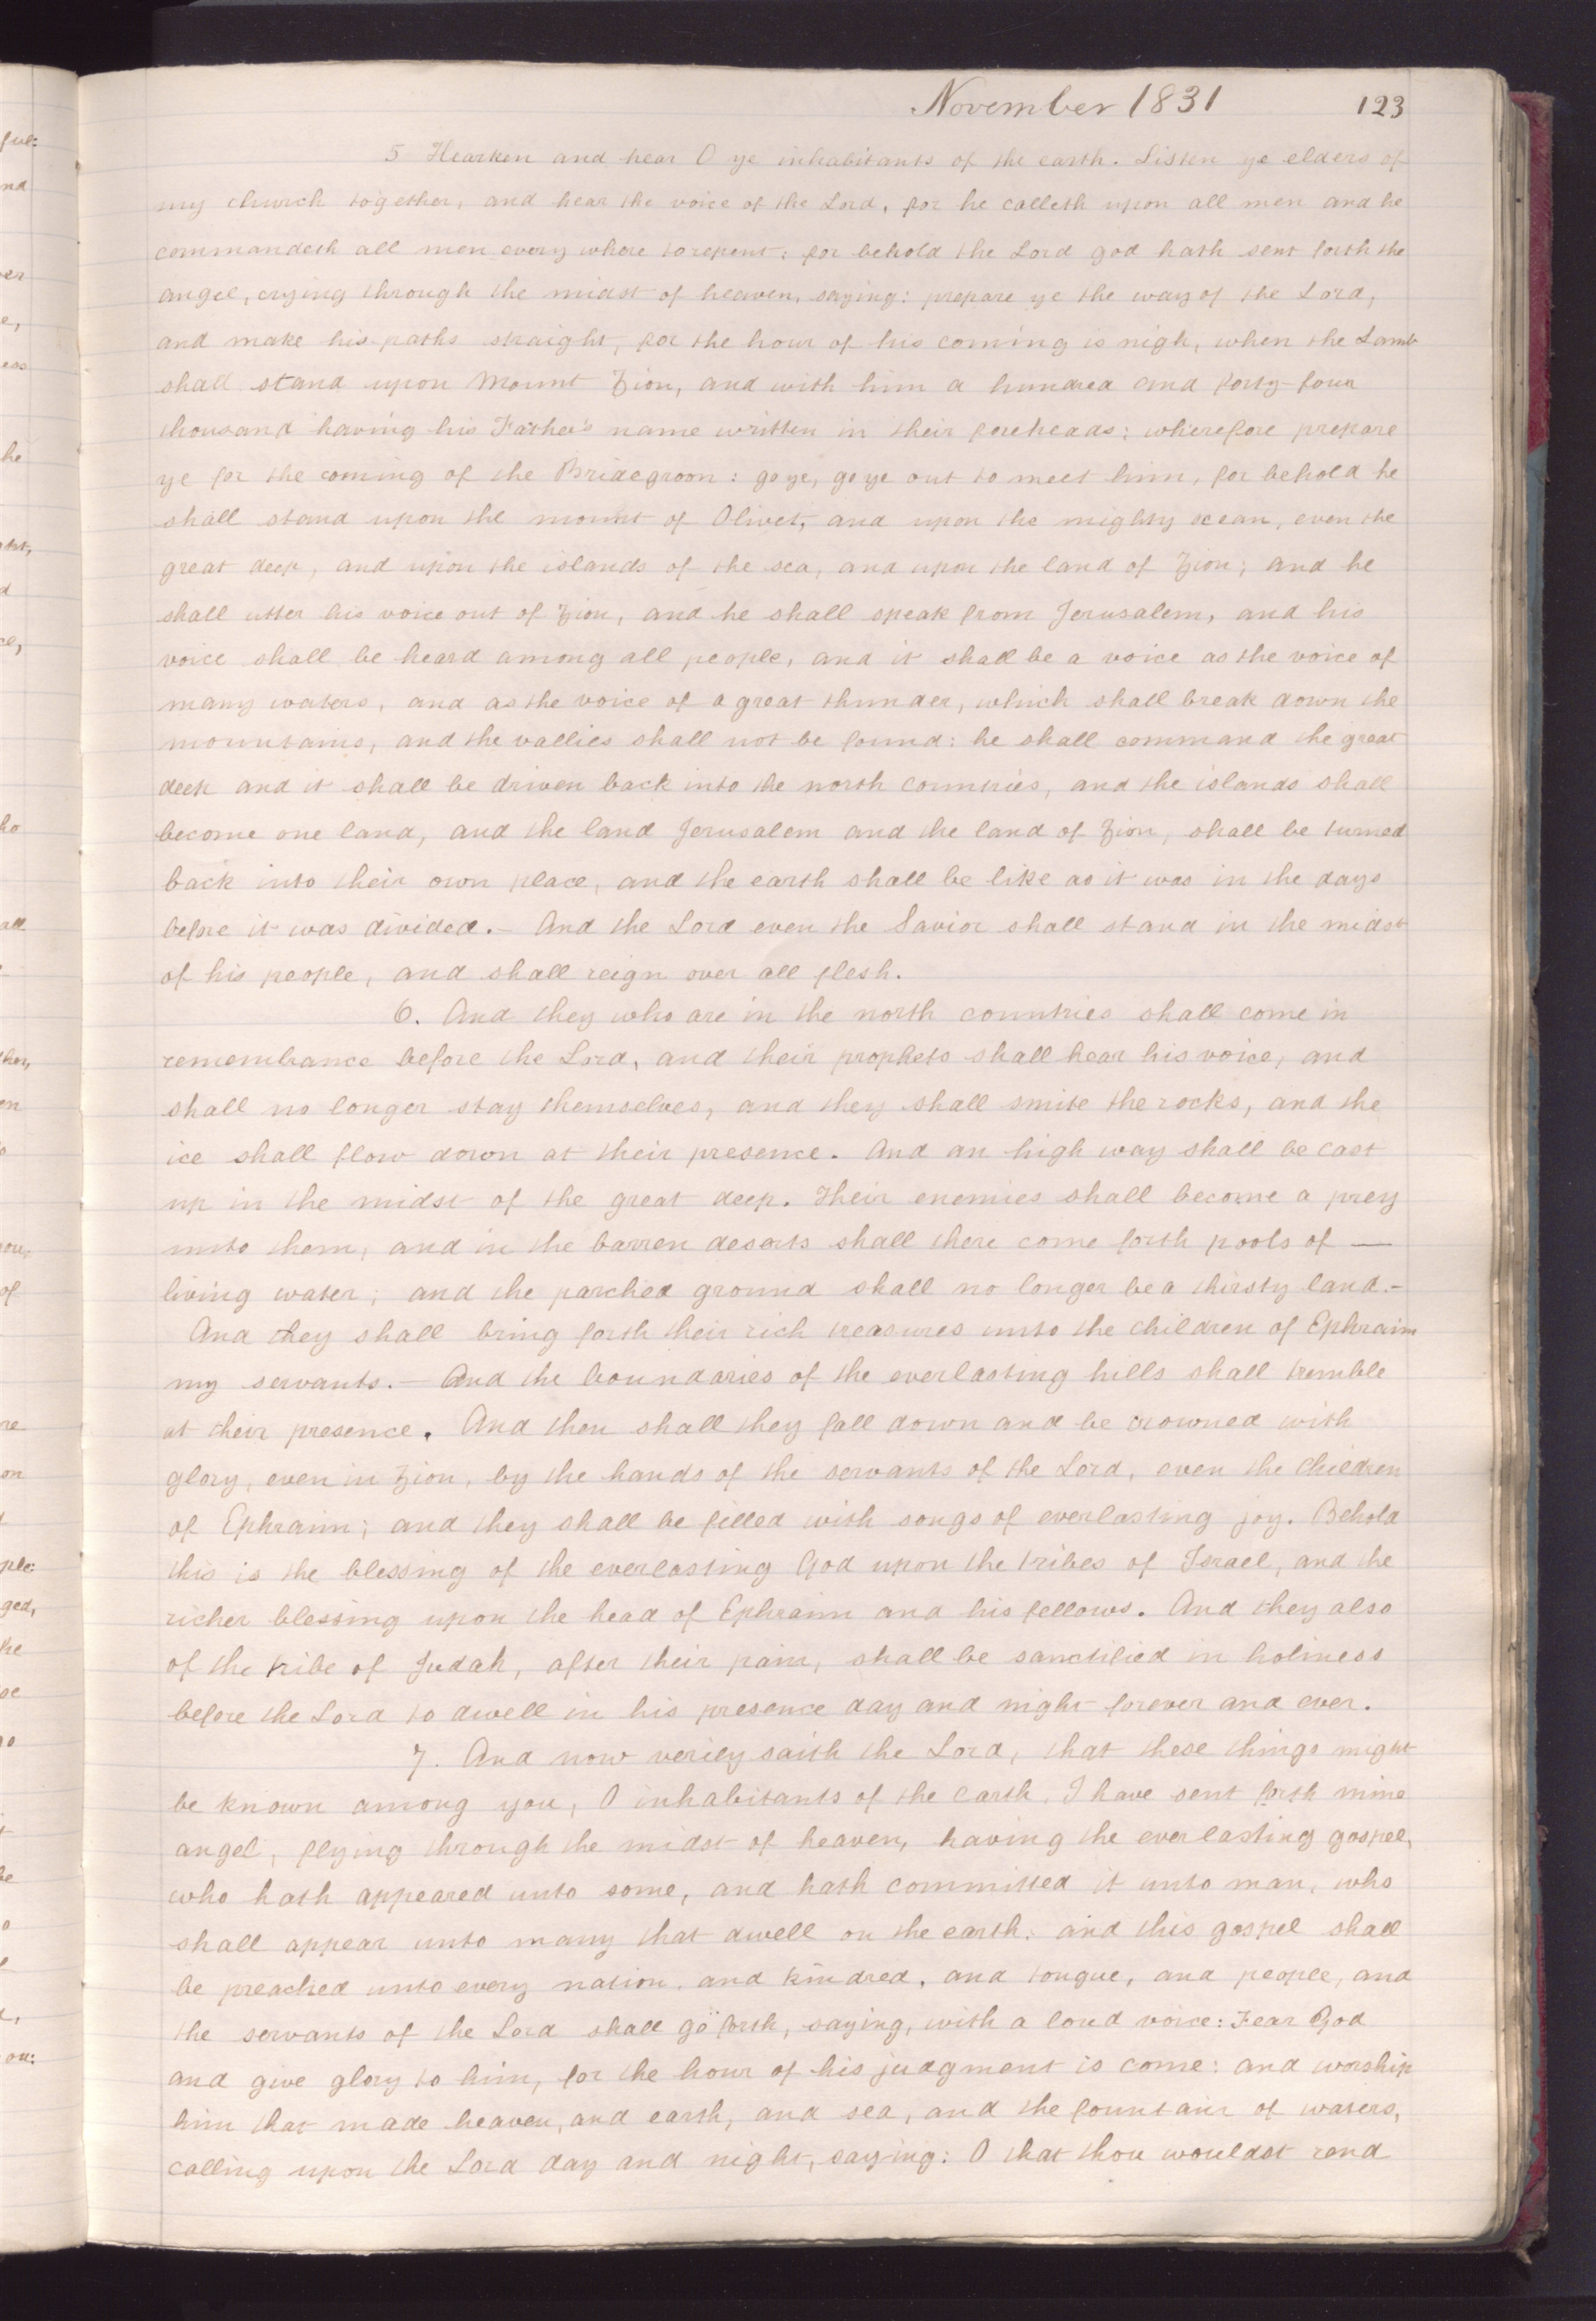 November 1831 123
5 Hearken and hear O ye inhabitants of the earth. Listen ye elders of
my church together, and hear the voice of the Lord, for he calleth upon all men and he
commandeth all men every where to repent: for behold the Lord god hath sent forth the
angel, crying through the midst of heaven, saying: prepare ye the way of the Lord,
and make his paths straight, for the hour of his coming is nigh, when the Lamb
shall stand upon Mount Zion, and with him a hundred and forty-four
thousand having his Father's name written in their foreheads: wherefore prepare
ye for the coming of the Bridegroom: go ye, go ye out to meet him, for behold he
shall stand upon the mount of Olivet, and upon the mighty ocean, even the
great deep, and upon the islands of the sea, and upon the land of Zion; and he
shall utter his voice out of Zion, and he shall speak from Jerusalem, and his
voice shall be heard among all people, and it shall be a voice as the voice of
many waters, and as the voice of a great thunder, which shall break down the
mountains, and the vallies shall not be found: he shall command the great
deep and it shall be driven back into the north countries, and the islands shall
become one land, and the land Jerusalem and the land of Zion, shall be turned
back into their own place, and the earth shall be like as it was in the days
before it was divided.- And the Lord even the Savior shall stand in the midst
of his people, and shall reign over all flesh.
6. And they who are in the north countries shall come in
remembrance before the Lord, and their prophets shall hear his voice, and
shall no longer stay themselves, and they shall smite the rocks, and the
ice shall flow down at their presence. And an high way shall be cast
up in the midst of the great deep. Their enemies shall become a prey
unto them, and in the barren deserts shall there come forth pools of —
living water; and the parched ground shall no longer be a thirsty land.-
And they shall bring forth their rich treasures unto the children of Ephraim
my servants.— And the boundaries of the everlasting hills shall tremble
at their presence. And then shall they fall down and be crowned with
glory, even in Zion, by the hands of the servants of the Lord, even the children
of Ephraim; and they shall be filled with songs of everlasting joy. Behold
this is the blessing of the everlasting God upon the tribes of Israel, and the
richer blessing upon the head of Ephraim and his fellows. And they also
of the tribe of Judah, after their pain, shall be sanctified in holiness
before the Lord to dwell in his presence day and night forever and ever.
7. And now verily saith the Lord, that these things might
be known among you, O inhabitants of the earth, I have sent forth mine
angel, flying through the midst of heaven, having the everlasting gospel,
who hath appeared unto some, and hath committed it unto man, who
shall appear unto many that dwell on the earth: and this gospel shall
be preached unto every nation, and kindred, and tongue, and people, and
the servants of the Lord shall go forth, saying, with a loud voice: Fear God
and give glory to him, for the hour of his judgment is come: and worship
him that made heaven, and earth, and sea, and the fountain of waters,
calling upon the Lord day and night, saying: O that thou wouldst rend